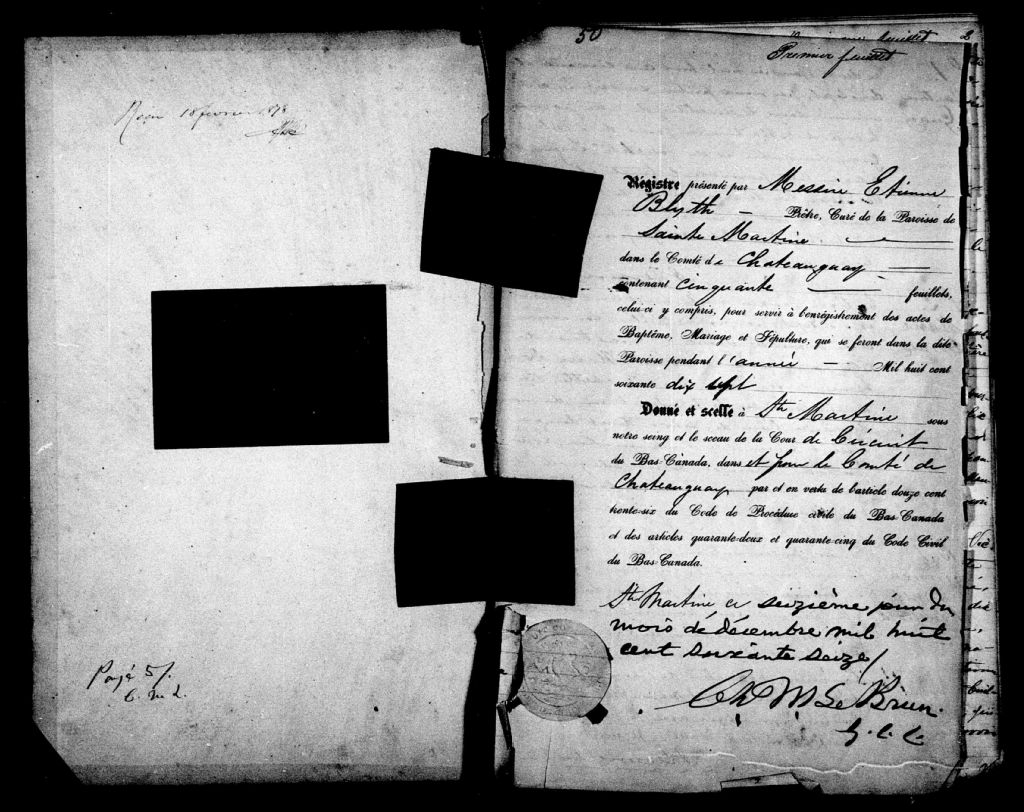 Reçu 18 fevrier 1878
Payé 5/.
C. M. L.
50
Premier feuillet
Régistre présenté par Messire Etienne
Blyth — Prêtre, Curé de la Paroisse de
Sainte Martine
dans le Comté de Chateauguay
contenant cinquante feuillets,
celui-ci y compris, pour servir à l'enrégistrement des actes de
Baptême, Mariage et Sépulture, qui se feront dans la dite
Paroisse pendant l'année — Mil huit cent
soixante dix sept
Donné et scellé à Ste Martine sous
notre seing et le sceau de la Cour de Circuit
du Bas-Canada, dans et pour le Comté de
Chateauguay par et en vertu de l'article douze cent
trente-six du Code de Procédure civile du Bas-Canada
et des articles quarante-deux et quarante-cinq du Code Civil
du Bas-Canada.
Ste Martine, ce seizième jour du
mois de décembre mil huit
cent soixante seize /
Ch M Le Brun
G. C. C.